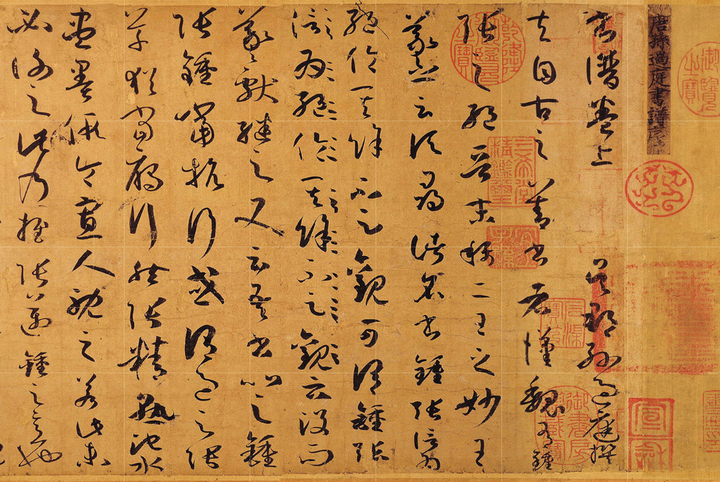 唐孫過庭書譜序
書譜卷上 吳郡孫過庭撰
夫自古之善書者漢魏有鍾
張之絕晉末稱二王之妙王
羲之云頃尋諸名書鍾張信為
絕倫其餘不足觀可謂鍾張
信為絕倫其餘不足觀云沒而
羲獻繼之又云吾書比之鍾
張鍾當抗行或謂過之張
草猶當雁行然張精熟池水
盡墨假令寡人耽之若此未
必謝之此乃推張邁鍾之意也
三希堂精鑑璽
宜子孫
宣和